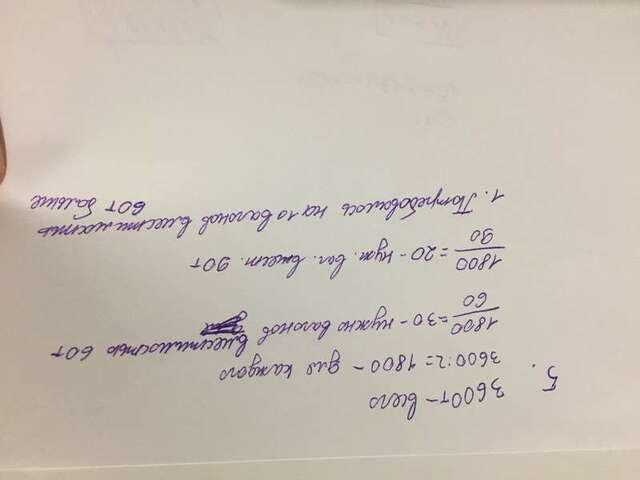 5. 3600т – всего
3600:2=1800 – для каждого
1800/60 =30 – нужно вагонов вместимостью 60т
1800/90 =20 – нуж. ваг. вмест. 90т
1. Потребовалось на 10 вагонов вместимостью
60т больше